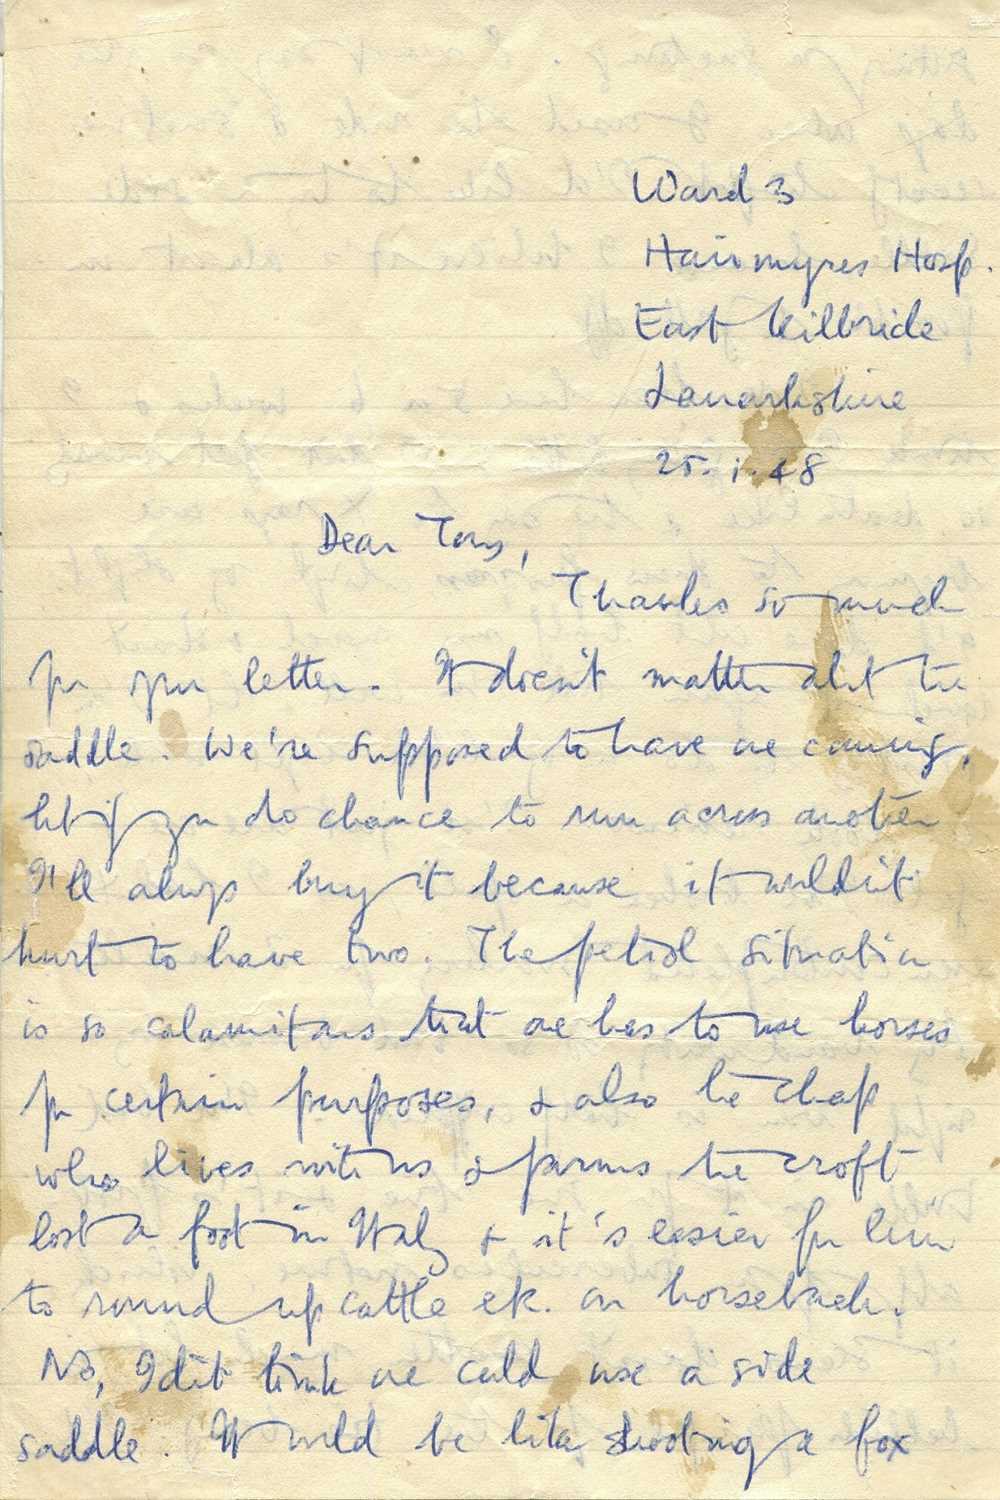 Ward 3
Hairmyres Hosp.
East Kilbride
Lanarkshire
25.1.48
Dear Tony,
Thanks so much
for your letter. It doesn't matter abt the
saddle. We're supposed to have one coming,
but if you do chance to run across another
I'll always buy it because it wouldn't
hurt to have two. The petrol situation
is so calamitous that one has to use horses
for certain purposes, & also the chap
who lives with us & farms the croft
lost a foot in Italy & it's easier for him
to round up cattle etc. on horseback.
No, I don't think one could use a side
saddle. It would be like shooting a fox